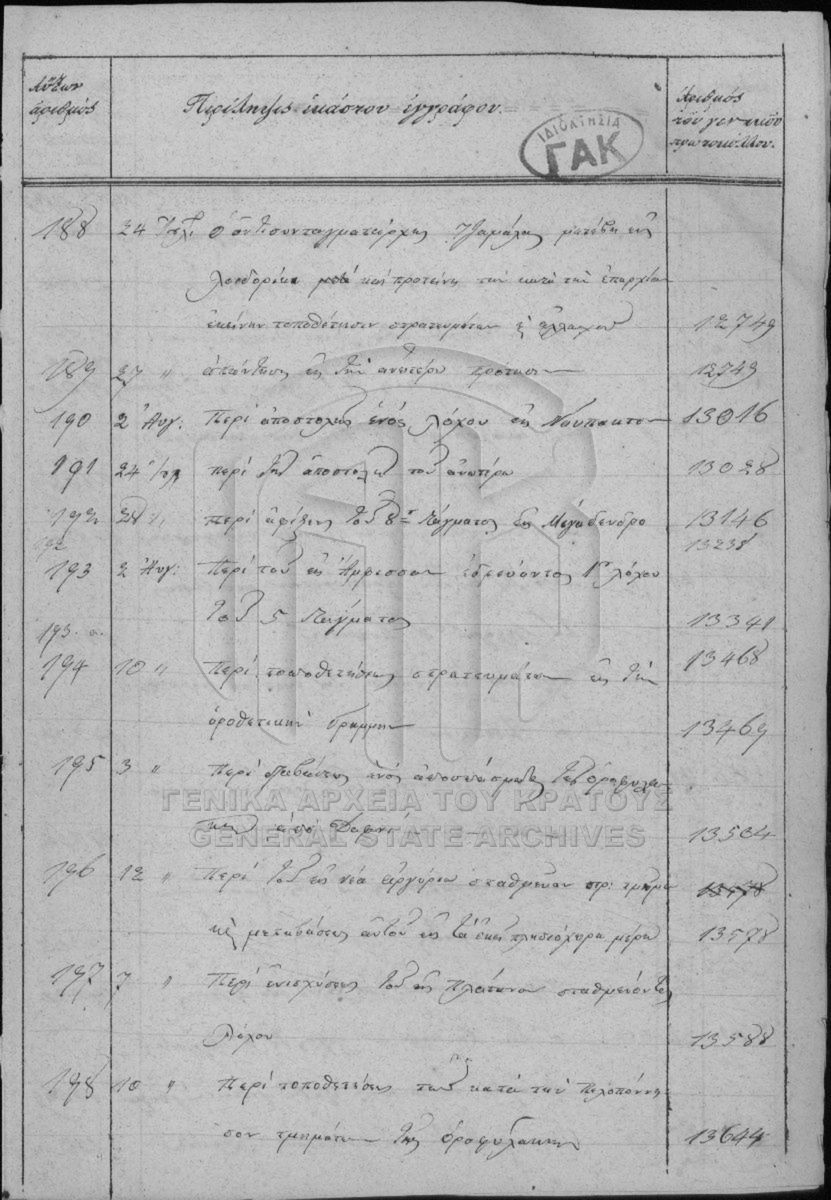 Αὔξων ἀριθμός
Περίληψις ἑκάστου ἐγγράφου.
Ἀριθμὸς τοῦ γενικοῦ πρωτοκόλλου.
ΙΔΙΟΚΤΗΣΙΑ
ΓΑΚ
188 24 Ἰουλ. ὁ ἀντισυνταγματάρχης μετέβη εἰς
καὶ προτείνει τὴν κατὰ τὴν ἐπαρχίαν
ἐκείνην τοποθέτησιν στρατευμάτων 12749
189 27 〃 ἀπάντησις εἰς τὴν ἀνωτέρω πρότασιν 12749
190 2 Αὐγ: Περὶ ἀποστολῆς ἑνὸς λόχου εἰς Ναύπακτον 13016
191 24 Ἰουλ περὶ τῆς ἀποστολῆς τοῦ ἀνωτέρω 13028
192 28 〃 περὶ ἀφίξεως τοῦ 8ου Τάγματος εἰς Μεγαδενδρο 13146
192 13238
193 2 Αὐγ: Περὶ τοῦ εἰς Ἄμφισσαν ἑδρεύοντος 1ου λόχου
τοῦ 5 Τάγματος 13341
193. α
194 10 〃 Περὶ τοποθετήσεως στρατευμάτων εἰς τὴν 13468
ὁροθετικὴν γραμμὴν 13469
195 3 〃 Περὶ μεταβάσεως ἑνὸς ἀποσπάσματος τῆς ὁροφυλα
κῆς ἀπὸ 13504
ΓΕΝΙΚΑ ΑΡΧΕΙΑ ΤΟΥ ΚΡΑΤΟΥΣ
GENERAL STATE ARCHIVES
196 12 〃 Περὶ τοῦ εἰς νέα σταθμεῦον στρ: τμῆμα 13578
κ μεταβάσεως αὐτοῦ εἰς τὰ ἐκεῖ πλησιόχωρα μέρη 13578
197 7 〃 Περὶ ἐνισχύσεως τοῦ εἰς Πλάτανον σταθμεύοντος
λόχου 13588
198 10 〃 Περὶ τοποθετήσεως τῶν κατὰ τὴν Πελοπόννη
σον τμημάτων τῆς ὁροφυλακῆς 13644